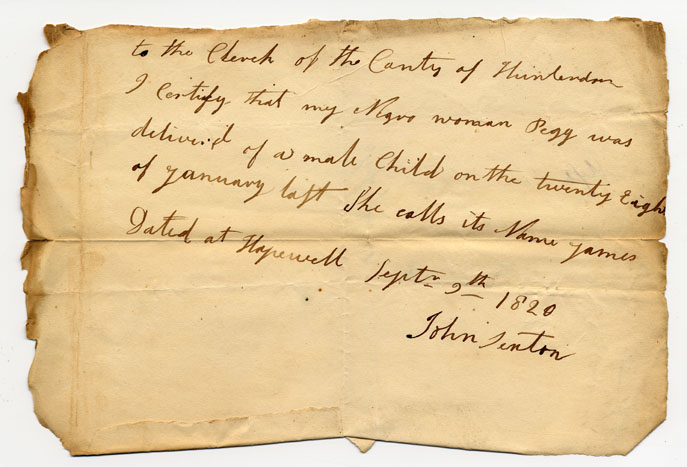 to the Clerck of the Conty of Hunterdon
I Certify that my Negro woman Pegg was
deliver'd of a male Child on the twenty Eight
of January last She calls its Name James
Dated at Hopewell Septr 9th 1820
John Sexton